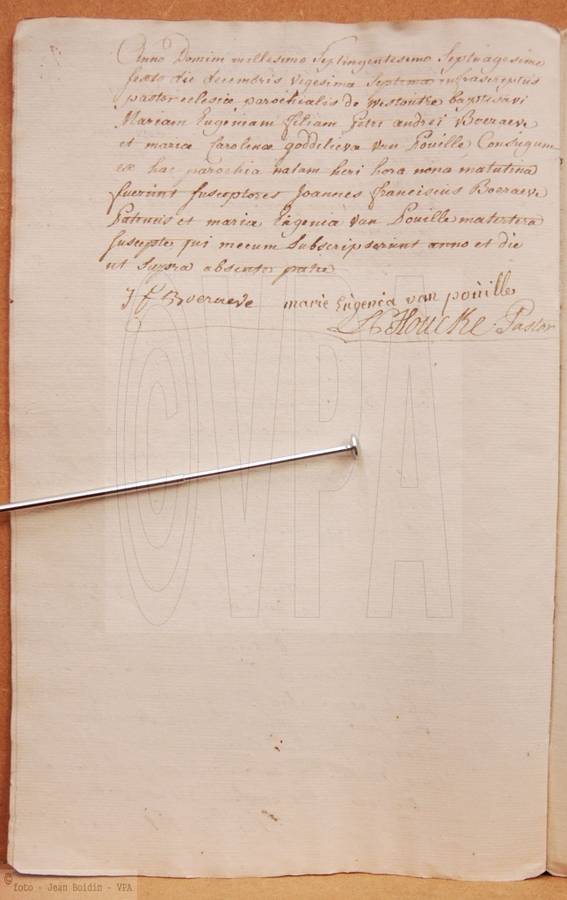 Anno Domini millesimo Septingentesimo Septuagesimo
sexto die decembris vigesima Septima infrascriptus
pastor eclesiæ parochialis de Westoutre baptisavi
Mariam Eugeniam filiam Petri andreæ Boeraeve
et mariæ Carolinæ goddelieva van Pouille Conjugum
ex hac parochia natam heri hora nona matutina
fuerunt susceptores Joannes franciscus Boeraeve
et maria Eugenia van Pouille matertera
susceptæ qui mecum Subscripserunt anno et die
ut supra absente patre
J f Boeraeve marie Eugenia van pouille
Houcke Pastor
©VPA
© foto - Jean Boidin - VPA